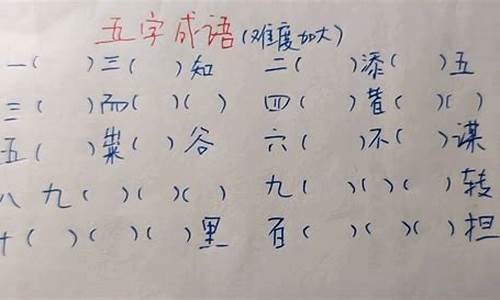 五字成语(难度加大)
一( )三( )知 二( )添( )五
三( )而( )( ) 四( )昔( )( )
五( )粜( )谷 六( )不( )谋
八九( )( )( ) 九( )( )( )转
十( )( )( )里 百( )( )( )担